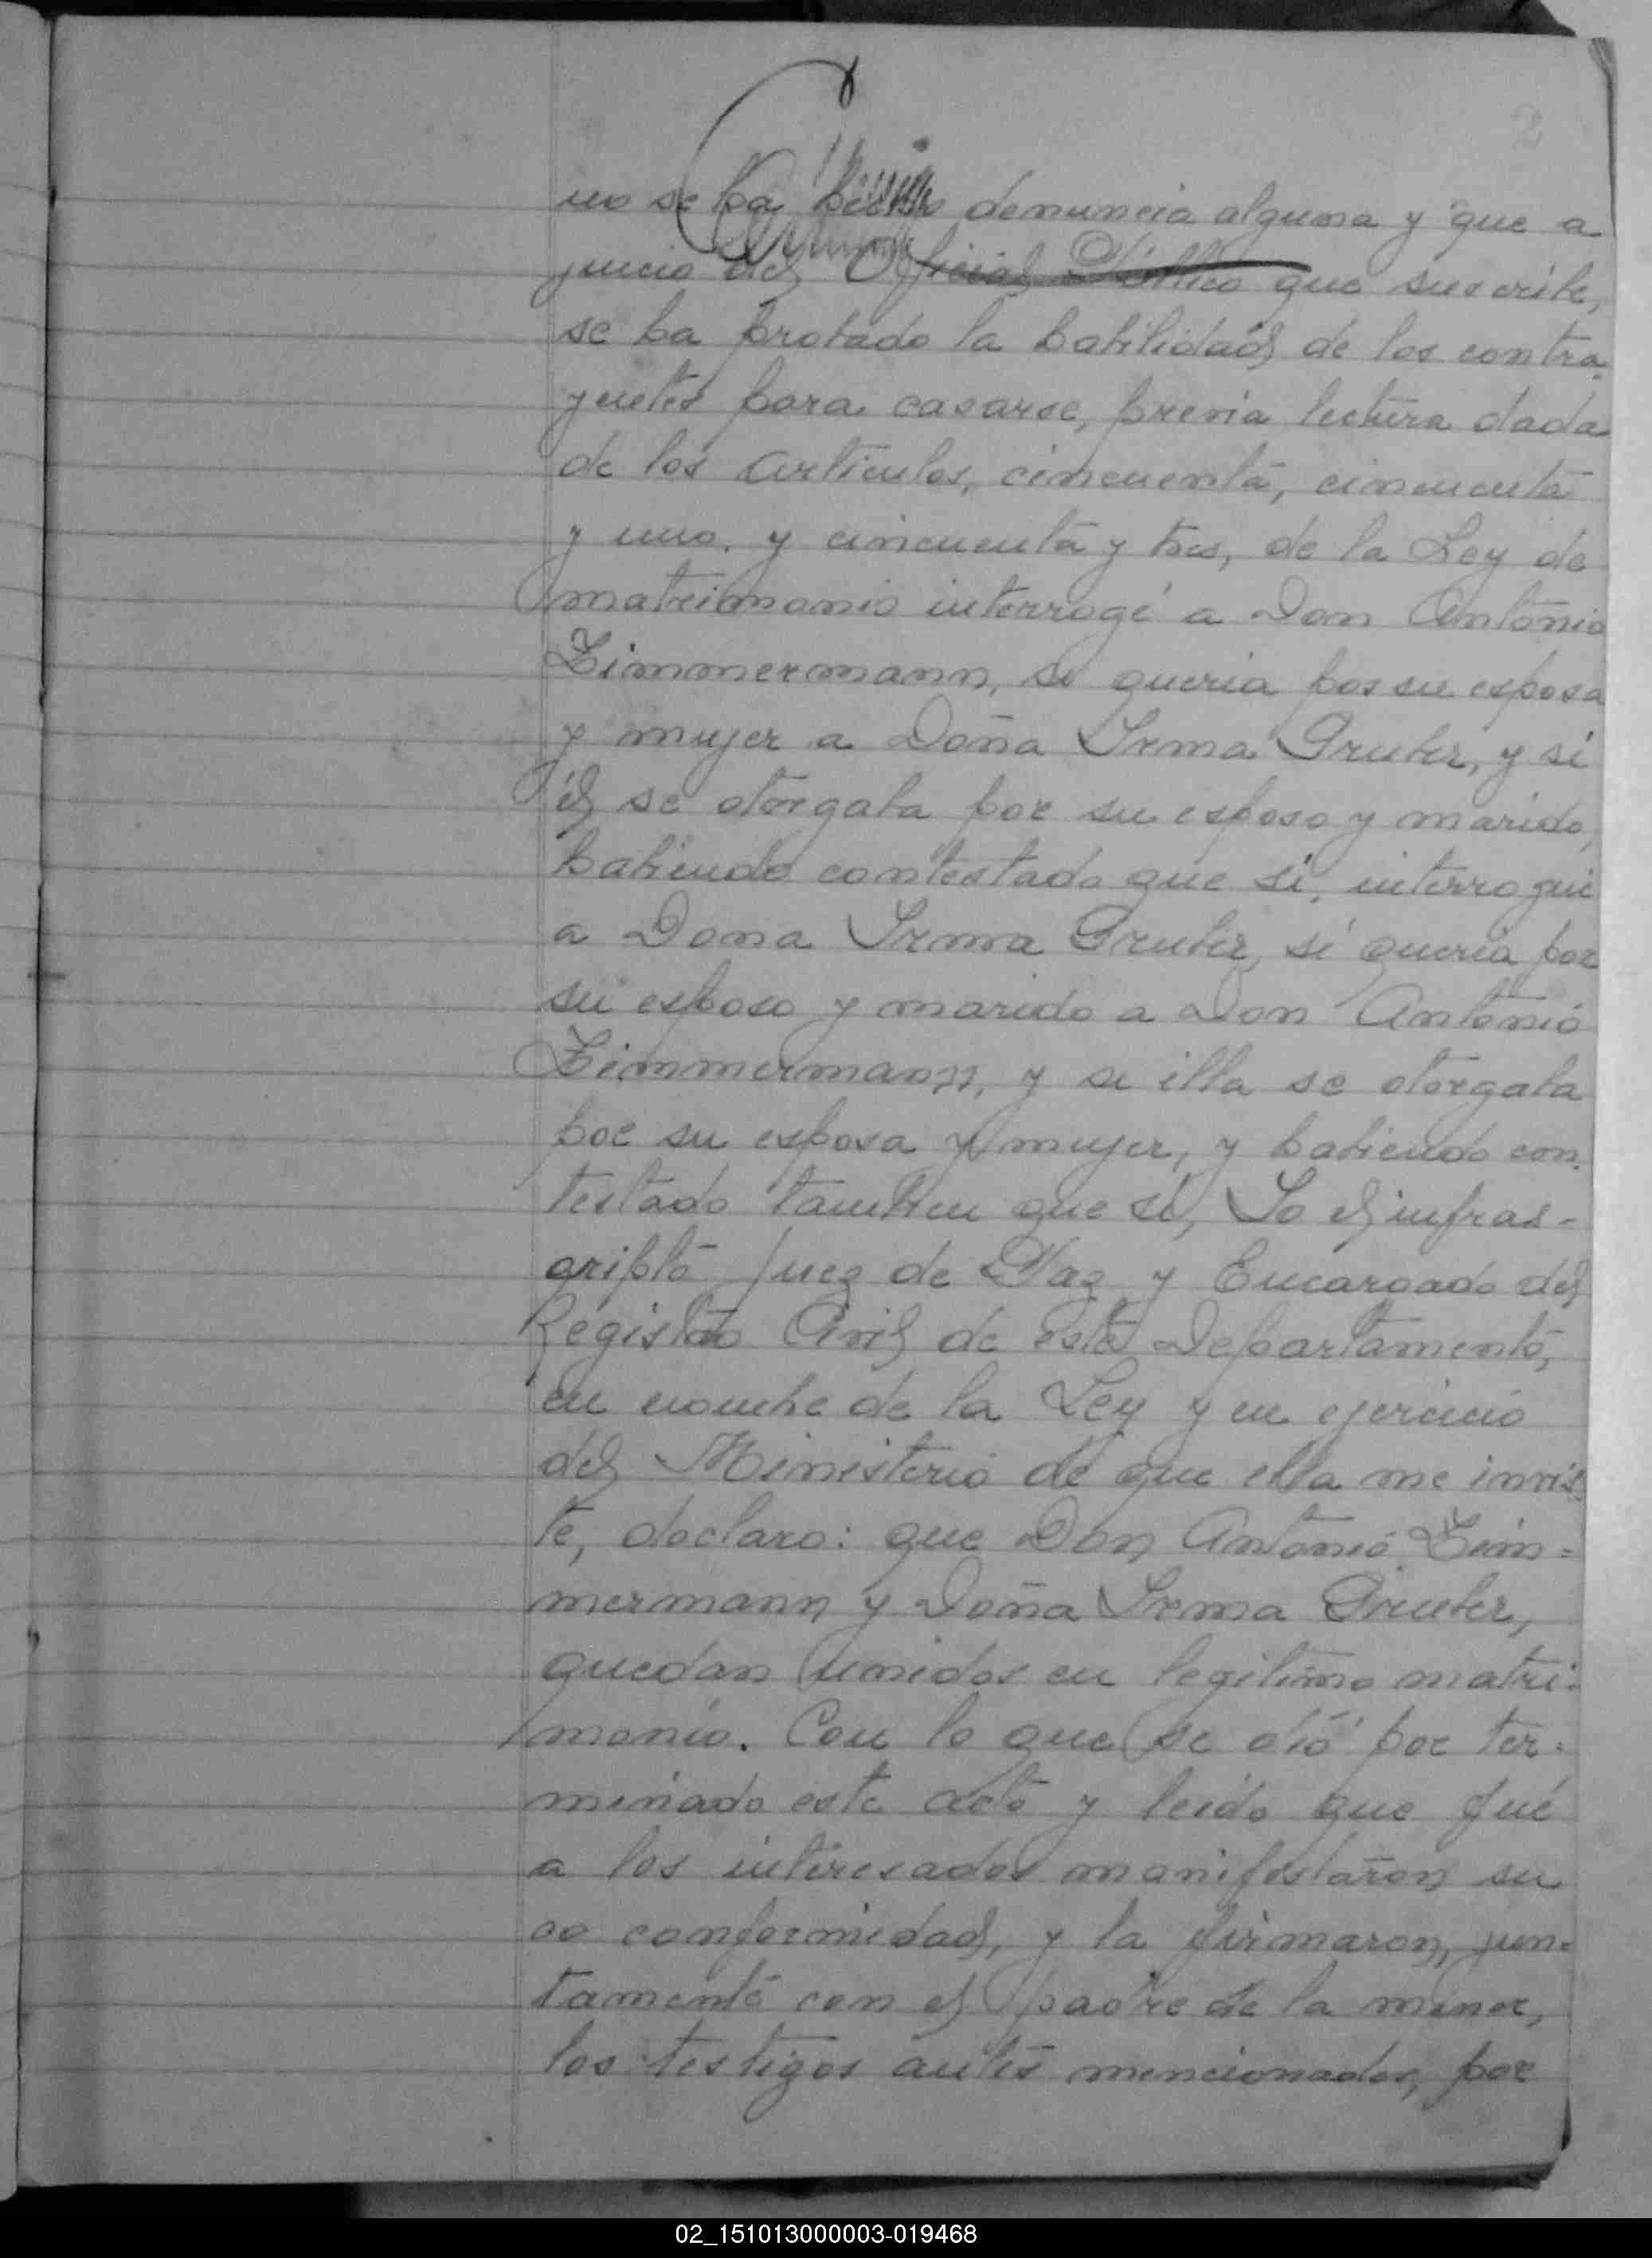 2
no se ha hecho denuncia alguna y que a
juicio del Oficial Público que suscribe,
se ha probado la habilidad de los contra-
yentes para casarse, previa lectura dada
de los articulos, cincuenta, cincuenta
y uno. y cincuenta y tres, de la Ley de
matrimonio interrogé a Don Antonio
Zimmermann, si queria por su esposa
y mujer a Doña Irma Gruber, y si
él se otorgaba por su esposo y marido,
habiendo contestado que si, interrogué
a Dona Irma Gruber, si queria por
su esposo y marido a Don Antonio
Zimmermann, y si ella se otorgaba
por su esposa y mujer, y habiendo con-
testado tambien que si, Yo el infras-
cripto Juez de Paz y Encargado del
Registro Civil de este Departamento,
en nombre de la Ley y en ejercicio
del Ministerio de que ella me invis-
te, declaro: que Don Antonio Zim=
mermann y Doña Irma Gruber,
quedan unidos en legitimo matri-
monio. Con lo que se dió por ter-
minado este acto y leido que fué
a los interesados manifestaron su
co conformidad, y la firmaron, jun-
tamente con el padre de la menor,
los testigos antes mencionados, por
02_151013000003-019468